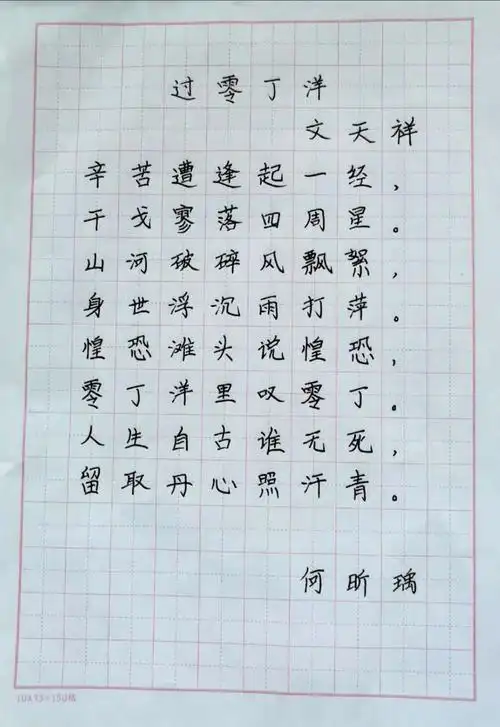 过零丁洋
文天祥
辛苦遭逢起一经，
干戈寥落四周星。
山河破碎风飘絮，
身世浮沉雨打萍。
惶恐滩头说惶恐，
零丁洋里叹零丁。
人生自古谁无死，
留取丹心照汗青。
何昕瑀
10X15=150格